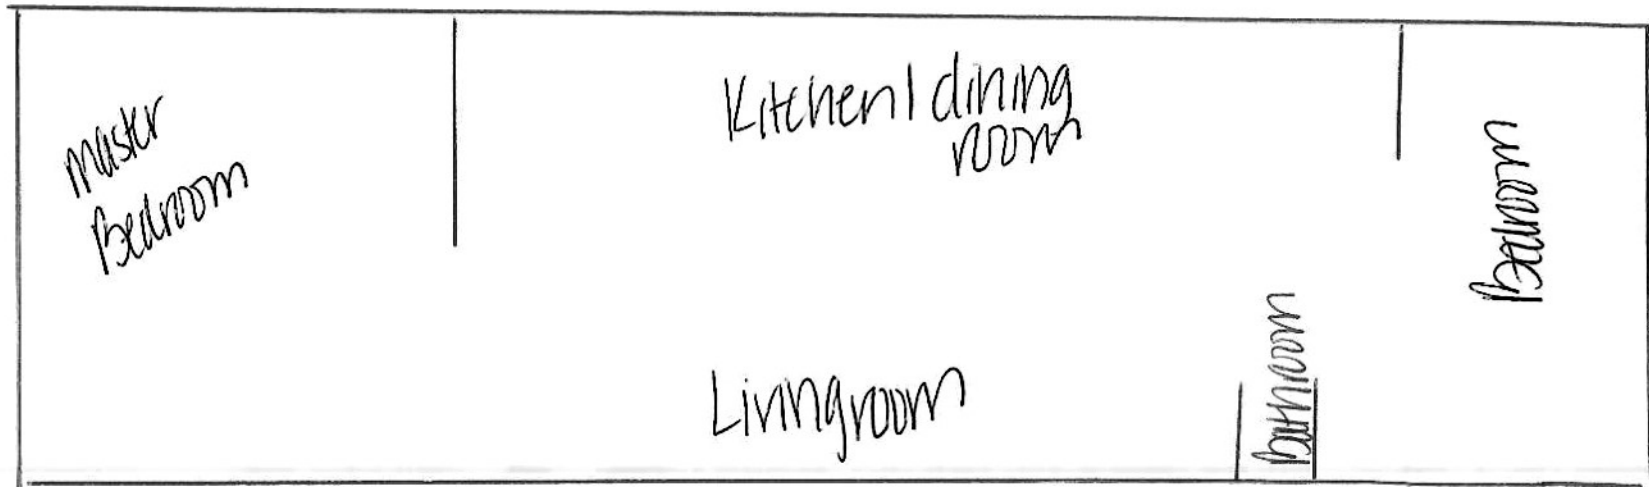 master
Bedroom
Kitchen/dining
room
Livingroom
Bathroom
Bedroom